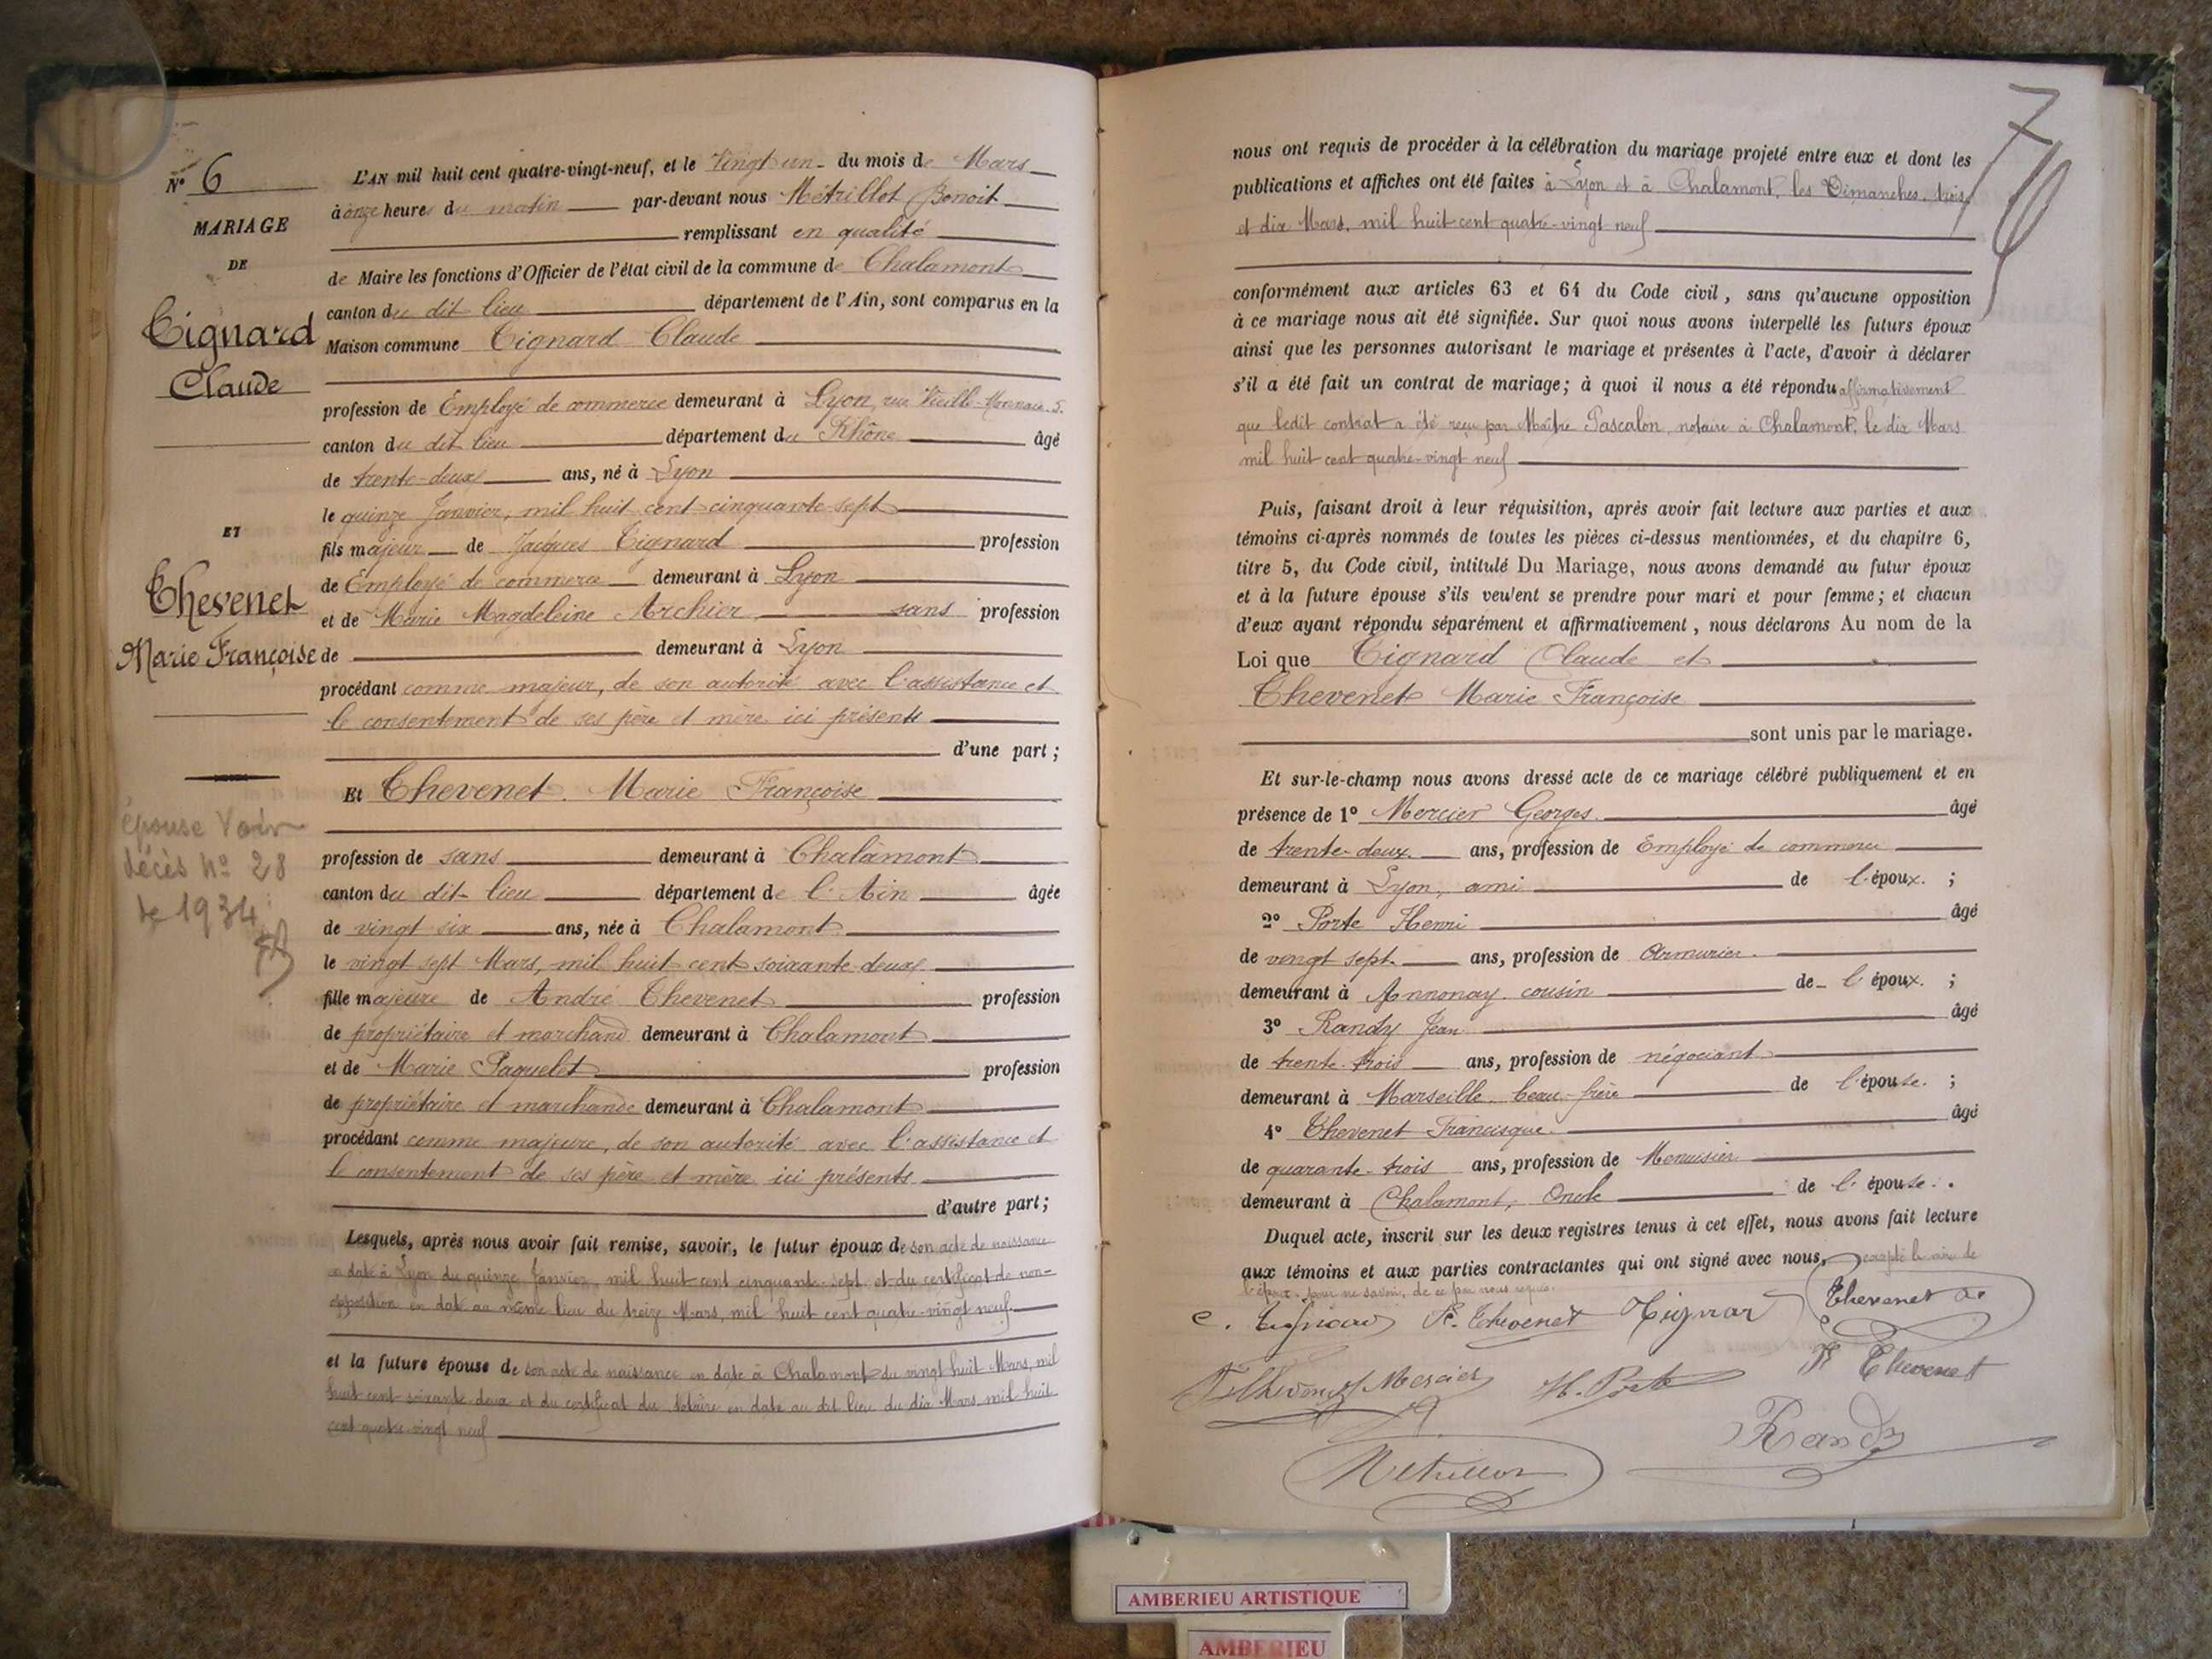 N° 6
MARIAGE
DE
Tignard
Claude
ET
Thevenet
Marie Françoise
épouse Voir
décès n° 28
de 1934
L'AN mil huit cent quatre-vingt-neuf, et le Vingt un du mois de Mars
à onze heures du matin par-devant nous Métrillot Benoit
remplissant en qualité
de Maire les fonctions d'Officier de l'état civil de la commune de Chalamont
canton du dit lieu département de l'Ain, sont comparus en la
Maison commune Tignard Claude
profession de Employé de commerce demeurant à Lyon, rue Vieille-Monnaie. 5.
canton du dit lieu département du Rhône âgé
de trente-deux ans, né à Lyon
le quinze Janvier, mil huit cent cinquante-sept
fils majeur de Jacques Tignard profession
de Employé de commerce demeurant à Lyon
et de Marie Magdeleine Archier sans profession
de demeurant à Lyon
procédant comme majeur, de son autorité avec l'assistance et
le consentement de ses père et mère ici présents
d'une part ;
Et Thevenet Marie Françoise
profession de sans demeurant à Chalamont
canton du dit lieu département de l'Ain âgée
de vingt six ans, née à Chalamont
le vingt sept Mars, mil huit cent soixante-deux
fille majeure de André Thevenet profession
de propriétaire et marchand demeurant à Chalamont
et de Marie Paquelet profession
de propriétaire et marchande demeurant à Chalamont
procédant comme majeure, de son autorité avec l'assistance et
le consentement de ses père et mère ici présents
d'autre part ;
Lesquels, après nous avoir fait remise, savoir, le futur époux de son acte de naissance
en date à Lyon du quinze Janvier, mil huit cent cinquante-sept et du certificat de non-
opposition en date au même lieu du treize Mars, mil huit cent quatre-vingt neuf.
et la future épouse de son acte de naissance en date à Chalamont du vingt huit Mars, mil
huit cent soixante deux et du certificat du Notaire en date au dit lieu du dix Mars mil huit
cent quatre-vingt neuf
76
nous ont requis de procéder à la célébration du mariage projeté entre eux et dont les
publications et affiches ont été faites à Lyon et à Chalamont, les Dimanches, trois
et dix Mars, mil huit cent quatre-vingt neuf
conformément aux articles 63 et 64 du Code civil, sans qu'aucune opposition
à ce mariage nous ait été signifiée. Sur quoi nous avons interpellé les futurs époux
ainsi que les personnes autorisant le mariage et présentes à l'acte, d'avoir à déclarer
s'il a été fait un contrat de mariage ; à quoi il nous a été répondu affirmativement
que ledit contrat a été reçu par Maître Pascalon, notaire à Chalamont, le dix Mars
mil huit cent quatre-vingt neuf
Puis, faisant droit à leur réquisition, après avoir fait lecture aux parties et aux
témoins ci-après nommés de toutes les pièces ci-dessus mentionnées, et du chapitre 6,
titre 5, du Code civil, intitulé Du Mariage, nous avons demandé au futur époux
et à la future épouse s'ils veulent se prendre pour mari et pour femme ; et chacun
d'eux ayant répondu séparément et affirmativement, nous déclarons Au nom de la
Loi que Tignard Claude et
Thevenet Marie Françoise
sont unis par le mariage.
Et sur-le-champ nous avons dressé acte de ce mariage célébré publiquement et en
présence de 1° Mercier Georges. âgé
de trente-deux ans, profession de Employé de commerce
demeurant à Lyon, ami de l'époux. ;
2° Porte Henri âgé
de vingt sept ans, profession de Armurier.
demeurant à Annonay cousin de l'époux. ;
3° Randy Jean âgé
de trente-trois ans, profession de négociant
demeurant à Marseille, beau-frère de l'épouse. ;
4° Thevenet Francisque âgé
de quarante-trois ans, profession de Menuisier
demeurant à Chalamont, Oncle de l'épouse.
Duquel acte, inscrit sur les deux registres tenus à cet effet, nous avons fait lecture
aux témoins et aux parties contractantes qui ont signé avec nous, excepté la mère de
l'époux, pour ne savoir, de ce par nous requis.
C. Tignard F. Thevenet Tignard Thevenet
Thevenet Mercier H. Porte F. Thevenet
Randy
Métrillot
AMBERIEU ARTISTIQUE
AMBERIEU